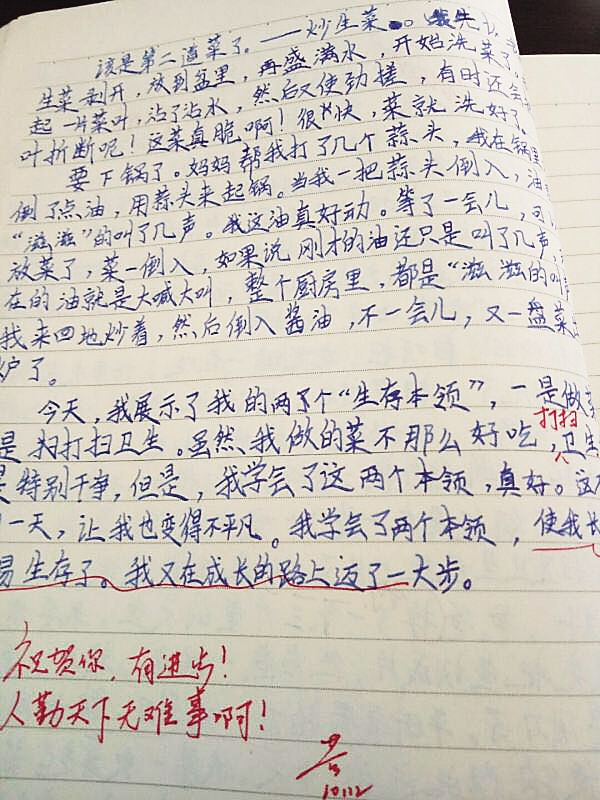 该是第二道菜了。——炒生菜。我先
生菜剥开，放到盆里，再盛满水，开始洗菜了。
起一片菜叶，沾了沾水，然后又使劲搓，有时还会
叶折断呢！这菜真脆啊！很快，菜就洗好了。
要下锅了。妈妈帮我打了几个蒜头，我在锅里
倒了点油，用蒜头来起锅。当我一把蒜头倒入，油
“滋滋”的叫了几声。我这油真好动。等了一会儿，可
放菜了，菜一倒入，如果说刚才的油还只是叫了几声，
在的油就是大喊大叫，整个厨房里，都是“滋滋的叫
我来回地炒着，然后倒入酱油，不一会儿，又一盘菜
炉了。
今天，我展示了我的两个“生存本领”，一是做
是打扫卫生。虽然我做的菜不那么好吃，打扫卫生
是特别干净，但是，我学会了这两个本领，真好。这
一天，让我也变得不平凡。我学会了两个本领，使我
易生存了。我又在成长的路上迈了一大步。
祝贺你，有进步！
人勤天下无难事啊！
10.12